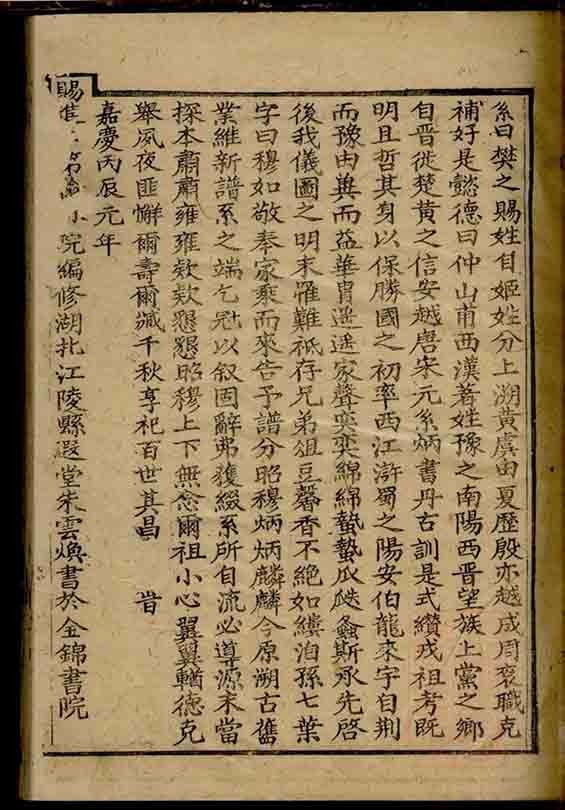 糸曰樊之賜姓自姬姓分上溯黃虞由夏歷殷亦越成周袞職克
補好是懿德曰仲山甫西漢著姓豫之南陽西晋望族上黨之鄉
自晋徙楚黃之信安越唐宋元系炳書丹古訓是式纘戎祖考既
明且哲其身以保勝國之初率西江滸蜀之陽安伯龍來宇自荆
而豫由冀而益華胄遥遥家聲奕奕綿綿蟄蟄瓜瓞螽斯承先啓
後我儀圖之明末罹難祗存兄弟俎豆馨香不絶如縷洎孫七葉
字曰穆如敬奉家乘而來告予譜分昭穆炳炳麟麟今原溯古舊
業維新譜系之端乞冠以叙固辭弗獲綴系所自流必導源末當
探本肅肅雍雍欵欵懇懇昭穆上下無念爾祖小心翼翼輶德克
舉夙夜匪懈爾壽爾臧千秋享祀百世其昌 旹
嘉慶丙辰元年
賜進 院編修湖北江陵縣遐堂朱雲煥書於金錦書院